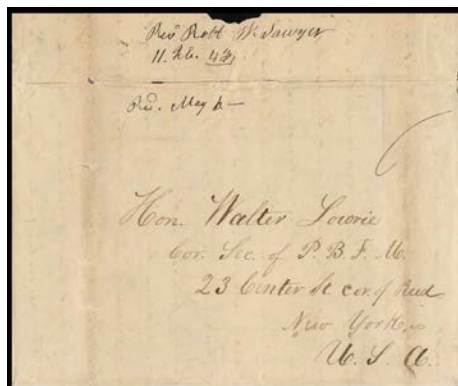 Revd Robt W. Sawyer
11. Feb. 43
Recd. May 6 —
Hon. Walter Lowrie
Cor. Sec. of P. B. F. M.
23 Center St cor. of Reed
New York
U. S. A.